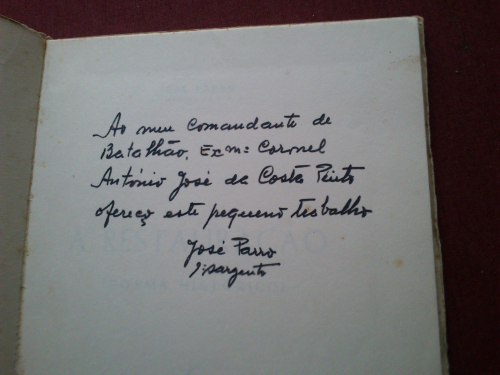 Ao meu Comandante de
Batalhão, Ex.mº Coronel
António José da Costa Pinto
ofereço este pequeno trabalho
José Parro
1º sargento